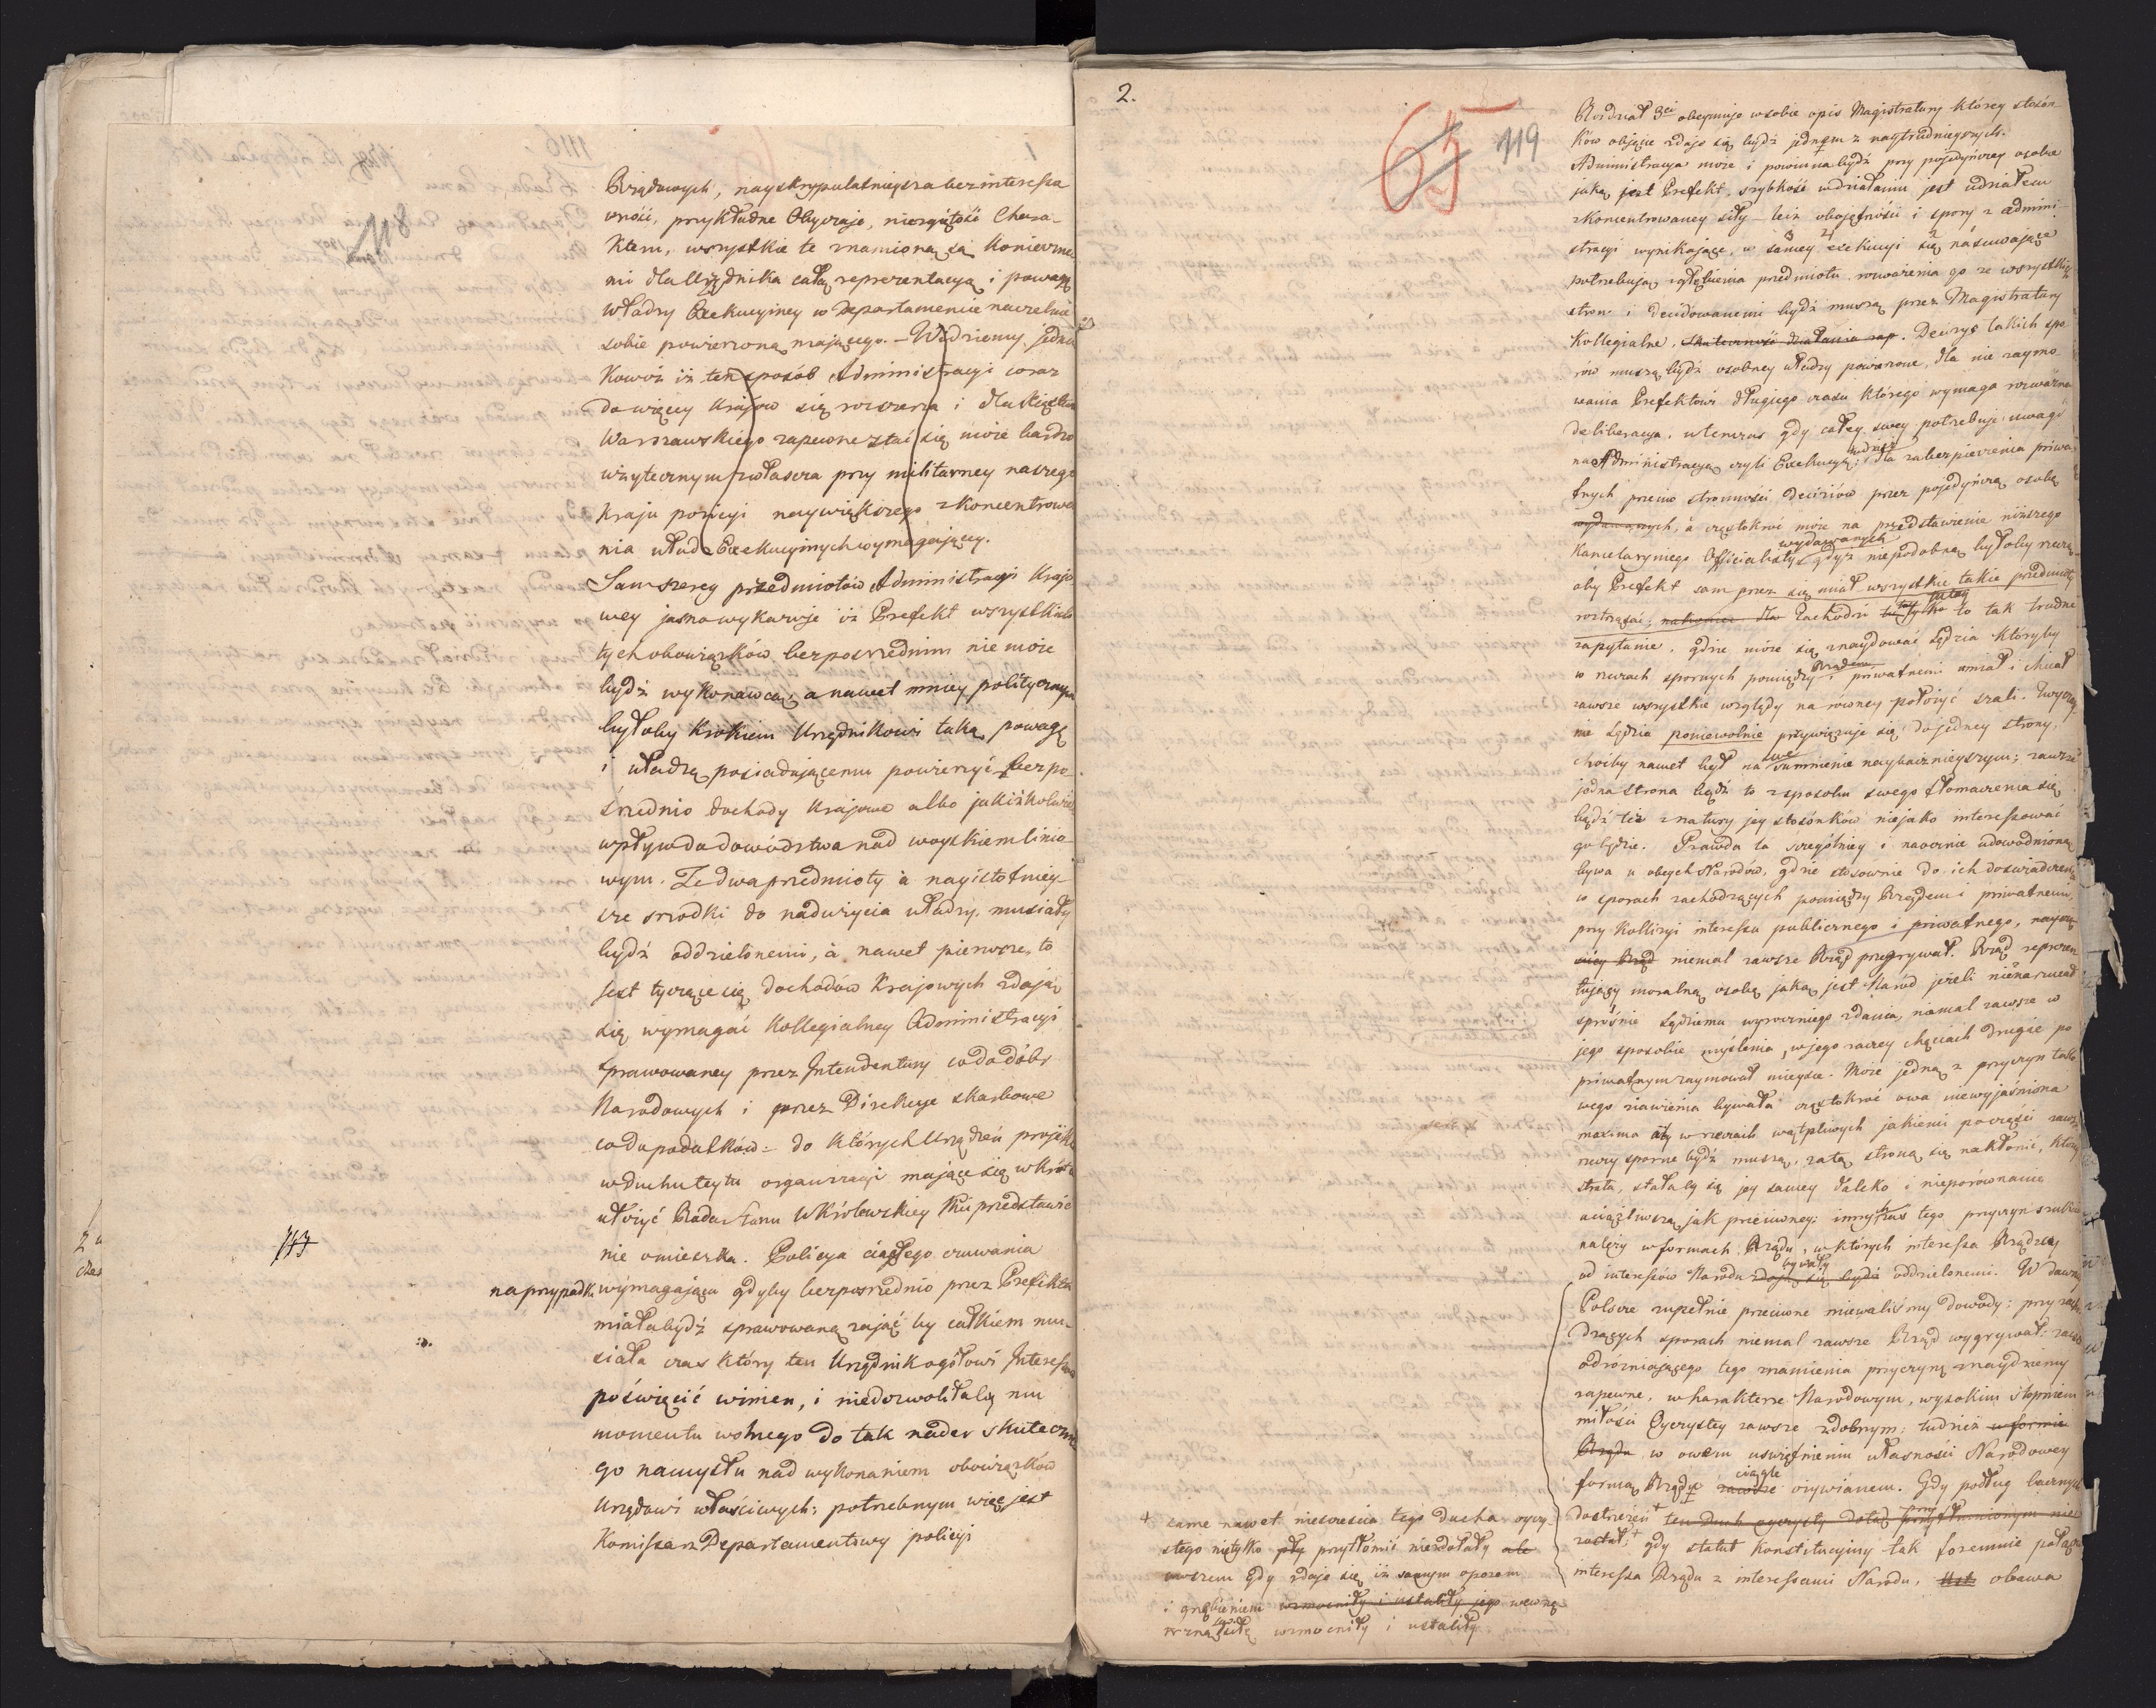 118
Rządowych, nayskrypulatnieysza bezinteressa
wność, przykładne Obyczaje, niezgiętość Chara-
kteru, wszystkie te znamiona są konieczne
mi dla Urzędnika całą reprezentacyą i powagę
władzy Exekucyiney w Departamencie naczelnie
sobie powierzoną mającego. – Widziemy jedna
kowoż iż ten sposób Administracyi coraz
do więcey Krajów się rozszerza i dla Xięstwa
Warszawskiego zapewne stać się może bardzo
użytecznym zwłaszcza przy militarney naszego
kraju pozycyi naywiększego zkoncentrowa
nia władz Exekucyinych wymagającey.
Sam szereg przedmiotów Administracyi Krajo
wey jasno wykazuje iż Prefekt wszystkich
tych obowiązków bezpośrednim nie może
bydź wykonawcą; a nawet mniey politycznym
byłoby krokiem Urzędnikowi taką powagę
i władzę posiadającemu powierzyć bezpo-
średnio dochody Krajowe albo jakiżkolwiek
wpływ do dowództwa nad woyskiem linio-
wym. Te dwa przedmioty à nayistotniey-
sze srzodki do nadużycia władzy, musiały
bydź oddzielonemi, à nawet pierwsze, to
jest tyczące się dochodów Krajowych zdają
się wymagać Kollegialney Administracyi
sprawowaney przez Intendentury co do dóbr
Narodowych i przez Direkcye skarbowe
co do podatków: do których Urządzeń projekta
w duchu teytu organizacyi mające się wkrótce
ułożyć Rada Stanu W. Królewskiey Mci przedstawić
743
nie omieszka. Policya ciągłego czuwania
na przypadki wymagająca gdyby bezpośrednio przez Prefekta
miała bydź sprawowaną zająć by całkiem mu-
siała czas który ten Urzędnik ogółowi Interessów
poświęcić winien, i niedozwoliłaby mu
momentu wolnego do tak nader skuteczne
go namysłu nad wykonaniem obowiązków
Urzędowi właściwych; potrzebnym więc jest
Komissarz Departamentowy policyi
2.
65
119
Rozdział 3ci obeymuje w sobie opis Magistratury którey stosun-
ków objęcie zdaje się bydź jednym z naytrudnieyszych.
Administracya może i powinna bydź przy pojedyńczey osobie
jaką jest Prefekt, szybkość w działaniu jest udziałem
zkoncentrowaney siły – lecz obojętności i spory z admini-
stracyi wynikające, w samey exekucyi się nasuwające
potrzebują zgłębienia przedmiotu, rozważenia go ze wszystkich
stron i decidowanemi bydź muszą przez Magistratury
Kollegialne. Skuteczność działania zap. Decizye takich spo
rów muszą bydź osobney władzy powierzone, dla nie zaymo
wania Prefektowi długiego czasu którego wymaga rozważna
deliberacya, wtenczas gdy całey swey potrzebuje uwagi
na Administracyą czyli Exekucyą; tudzież dla zabezpieczenia priwa
tnych przeciw stronności decizów przez pojedyńczą osobę
wydawanych, à częstokroć może na przedstawienie niższego
Kancelaryinego Officialisty wydawanych gdyż niepodobną byłoby rzeczą
aby Prefekt sam przez się miał wszystkie takie przedmioty
roztrząsać; nakoniec dla Zachodzi tutay to tak trudne
zapytanie, gdzie może się znaydować Sędzia któryby
w rzeczach spornych pomiędzy Rządem i priwatnemi umiał i chciał
zawsze wszystkie względy na równey położyć szali. Zwyczay-
nie Sędzia poniewolnie przywiązuje się do jedney strony,
choćby nawet był na swe sumnienie naybacznieyszym; zawsze
jedna strona bądź to z sposobu swego tłomaczenia się
bądź też z natury jey stosunków niejako interessować
go będzie. Prawda ta szególniey i naocznie udowodnioną
bywa u obcych Narodów, gdzie stosownie do ich doświadczenia
w sporach zachodzących pomiędzy Rządem i priwatnemi,
przy Kollizyi interessu publicznego i priwatnego, nayczę
ściey Rząd niemal zawsze Rząd przegrywał. Rząd reprezen
tujący moralną osobę jaką jest Naród jeżeli nienarzucał
sprośnie Sędziemu wyroczniego zdania, niemal zawsze w
jego sposobie myślenia, w jego raczey chęciach drugie po
priwatnym zaymował mieysce. Może jedną z przyczyn tako
wego zjawienia bywała częstokroć owa niewyjaśniona
maxima aby w rzeczach wątpliwych jakiemi po części zawsze
rzeczy sporne bydź muszą, za tą stroną się nakłonić, którey
strata, stałaby się jey samey daleko i nieporównanie
uciążliwszą jak przeciwney: innych zaś tego przyczyn szukać
należy w formach Rządu, w których interessa Rządzcy
od interessów Narodu zdają się bydź bywały oddzielonemi. W dawney
Polszcze zupełnie przeciwne miewaliśmy dowody: przy zacho
dzących sporach niemal zawsze Rząd wygrywał:
odróżniającego tego znamienia przyczynę znaydziemy
zapewne, w harakterze Narodowym, wysokim stopniem
miłości Oyczystey zawsze zdobnym; tudzież w formie
Rządu w owem uświętnieniu własności Narodowey
formą Rządu zawsze ciągle ożywianem. Gdy podług bacznych
dostrzeżeń + ten Duch oyczysty dotąd przytłumionym nie
został; + gdy statut Konstitucyiny tak foremnie połączył
interessa Rządu z interessami Narodu, obawa
+ same nawet nieszczęścia tego ducha oyczy-
stego nietylko przytłumić niezdołały ale
owszem gdy zdaje się iż samym oporem
i gnębieniem wzmocniły i ustaliły jego wewnę
trzną siłę wzmocniły i ustaliły